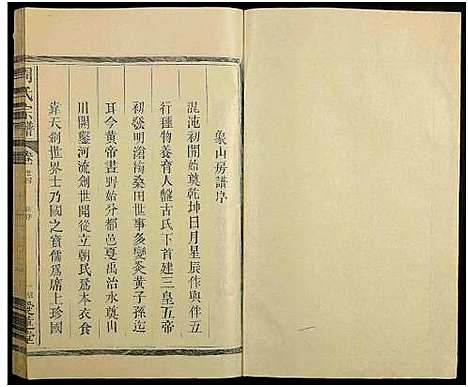 象山房譜序
混沌初開奠乾坤日月星辰作與伴五
行種物養育人盤古氏下首建三皇五帝
初發明滄海桑田世事多變炎黃子孫迄
耳今黃帝畫野始分都邑夏禹治水奠山
川開鑿河流創世開從立朝民為本衣食
靠天創世界士乃國之寶儒為席上珍國
周氏宗譜
卷之四
愛蓮堂